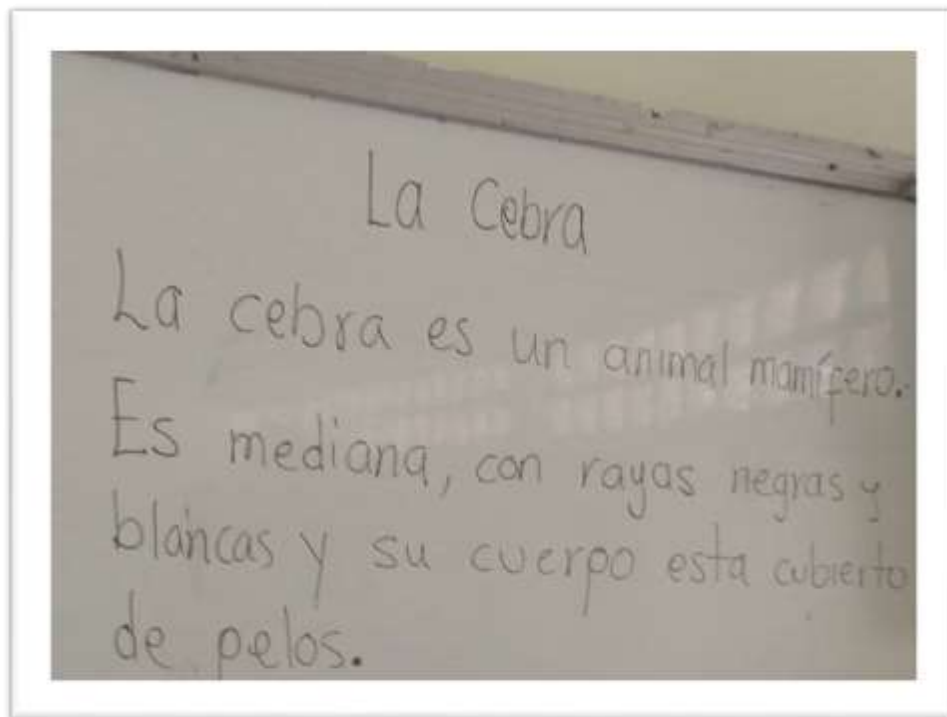 La Cebra
La cebra es un animal mamífero.
Es mediana, con rayas negras y
blancas y su cuerpo esta cubierto
de pelos.